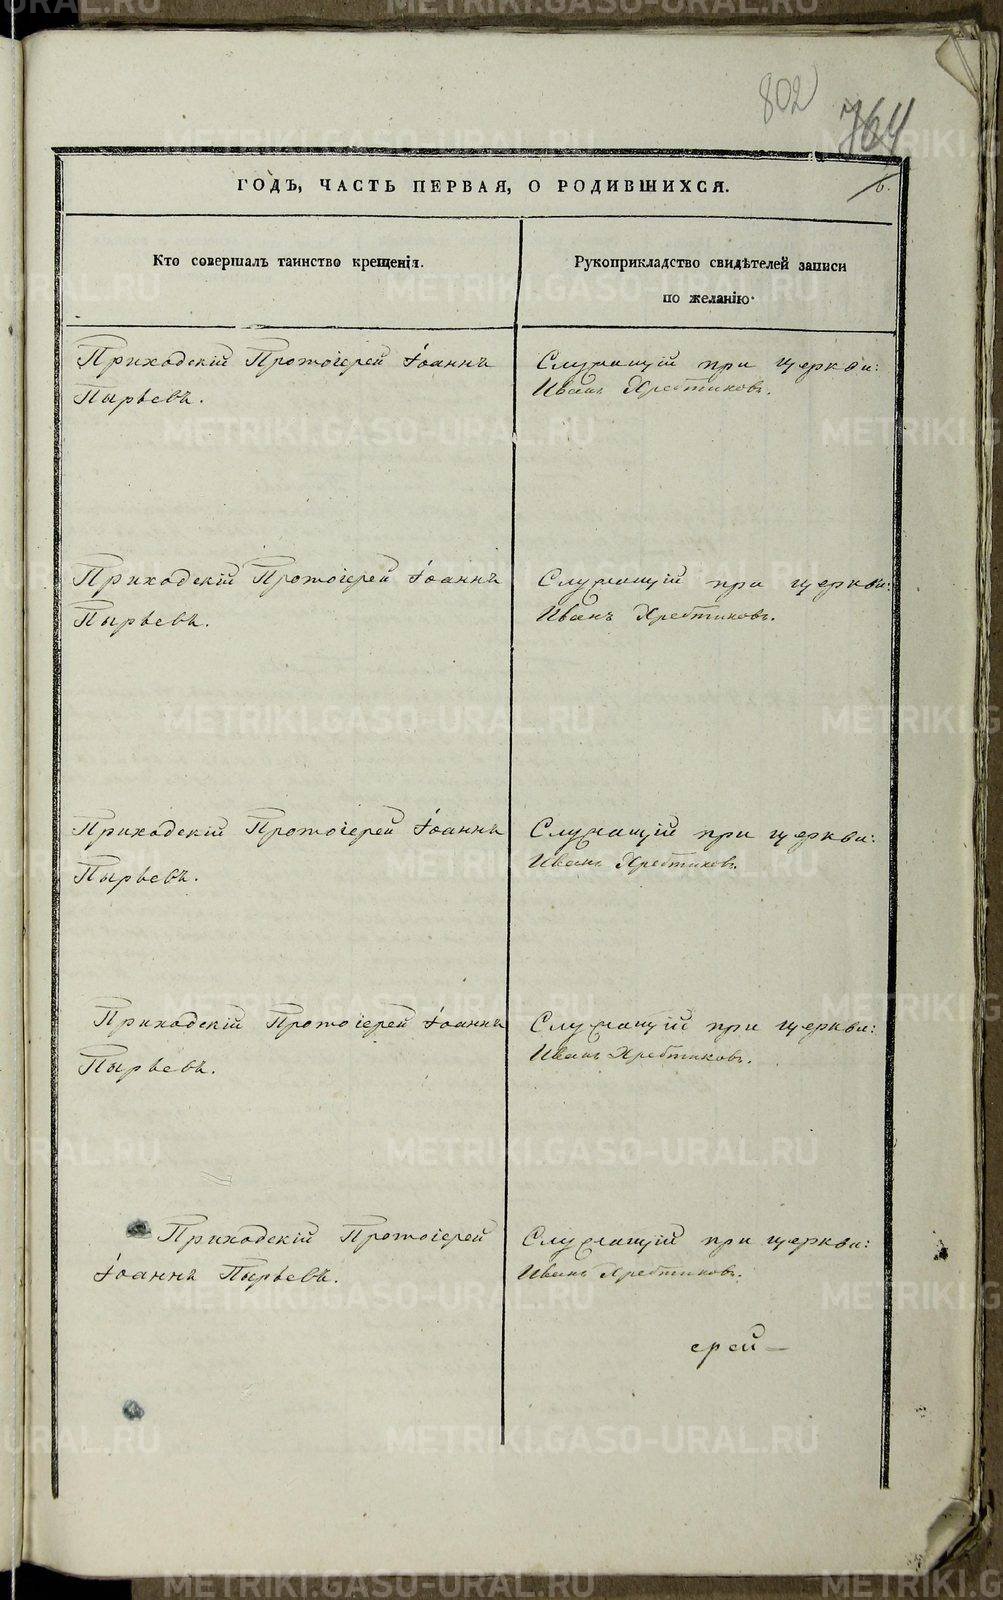 802
764
ГОДЪ, ЧАСТЬ ПЕРВАЯ, О РОДИВШИХСЯ.
6.
Кто совершалъ таинство крещенія.
Рукоприкладство свидѣтелей записи
по желанію.
Приходскій Протоіерей Іоаннъ
Пырьевъ.
Служащій при церкви:
Иванъ Хребтиковъ.
Приходскій Протоіерей Іоаннъ
Пырьевъ.
Служащій при церкви:
Иванъ Хребтиковъ.
Приходскій Протоіерей Іоаннъ
Пырьевъ.
Служащій при церкви:
Иванъ Хребтиковъ.
Приходскій Протоіерей Іоаннъ
Пырьевъ.
Служащій при церкви:
Иванъ Хребтиковъ.
Приходскій Протоіерей
Іоаннъ Пырьевъ.
Служащій при церкви:
Иванъ Хребтиковъ.
ерей
METRIKI.GASO-URAL.RU